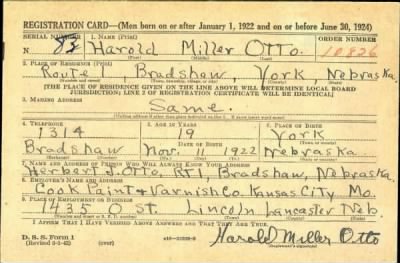 REGISTRATION CARD—(Men born on or after January 1, 1922 and on or before June 30, 1924)
SERIAL NUMBER 1. NAME (Print) ORDER NUMBER
Harold Miller Otto. 10826
(First) (Middle) (Last)
2. PLACE OF RESIDENCE (Print)
Route, Bradshaw, York, Nebraska.
(Number and street) (Town, township, village, or city) (County) (State)
[THE PLACE OF RESIDENCE GIVEN ON THE LINE ABOVE WILL DETERMINE LOCAL BOARD
JURISDICTION; LINE 2 OF REGISTRATION CERTIFICATE WILL BE IDENTICAL]
3. MAILING ADDRESS
Same.
4. TELEPHONE 5. AGE IN YEARS 6. PLACE OF BIRTH
1314 19 York
DATE OF BIRTH
Bradshaw Nov. 11 1922 Nebraska
(Exchange) (Number) (Mo.) (Day) (Yr.) (State or country)
7. NAME AND ADDRESS OF PERSON WHO WILL ALWAYS KNOW YOUR ADDRESS
Herbert J. Otto, Rt 1, Bradshaw, Nebraska.
8. EMPLOYER'S NAME AND ADDRESS
Cook Paint & Varnish Co. Kansas City Mo.
9. PLACE OF EMPLOYMENT OR BUSINESS
1435 O St. Lincoln Lancaster Neb
(Number and street or R. F. D. number) (Town) (County) (State)
I AFFIRM THAT I HAVE VERIFIED ABOVE ANSWERS AND THAT THEY ARE TRUE.
D. S. S. Form 1
Harold Miller Otto
(Registrant's signature)